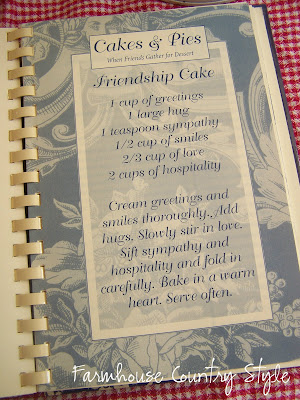 Cakes & Pies
When Friends Gather for Dessert
Friendship Cake
1 cup of greetings
1 large hug
1 teaspoon sympathy
1/2 cup of smiles
2/3 cup of love
2 cups of hospitality
Cream greetings and
smiles thoroughly. Add
hugs, Slowly stir in love.
Sift sympathy and
hospitality and fold in
carefully. Bake in a warm
heart. Serve often.
Farmhouse Country Style